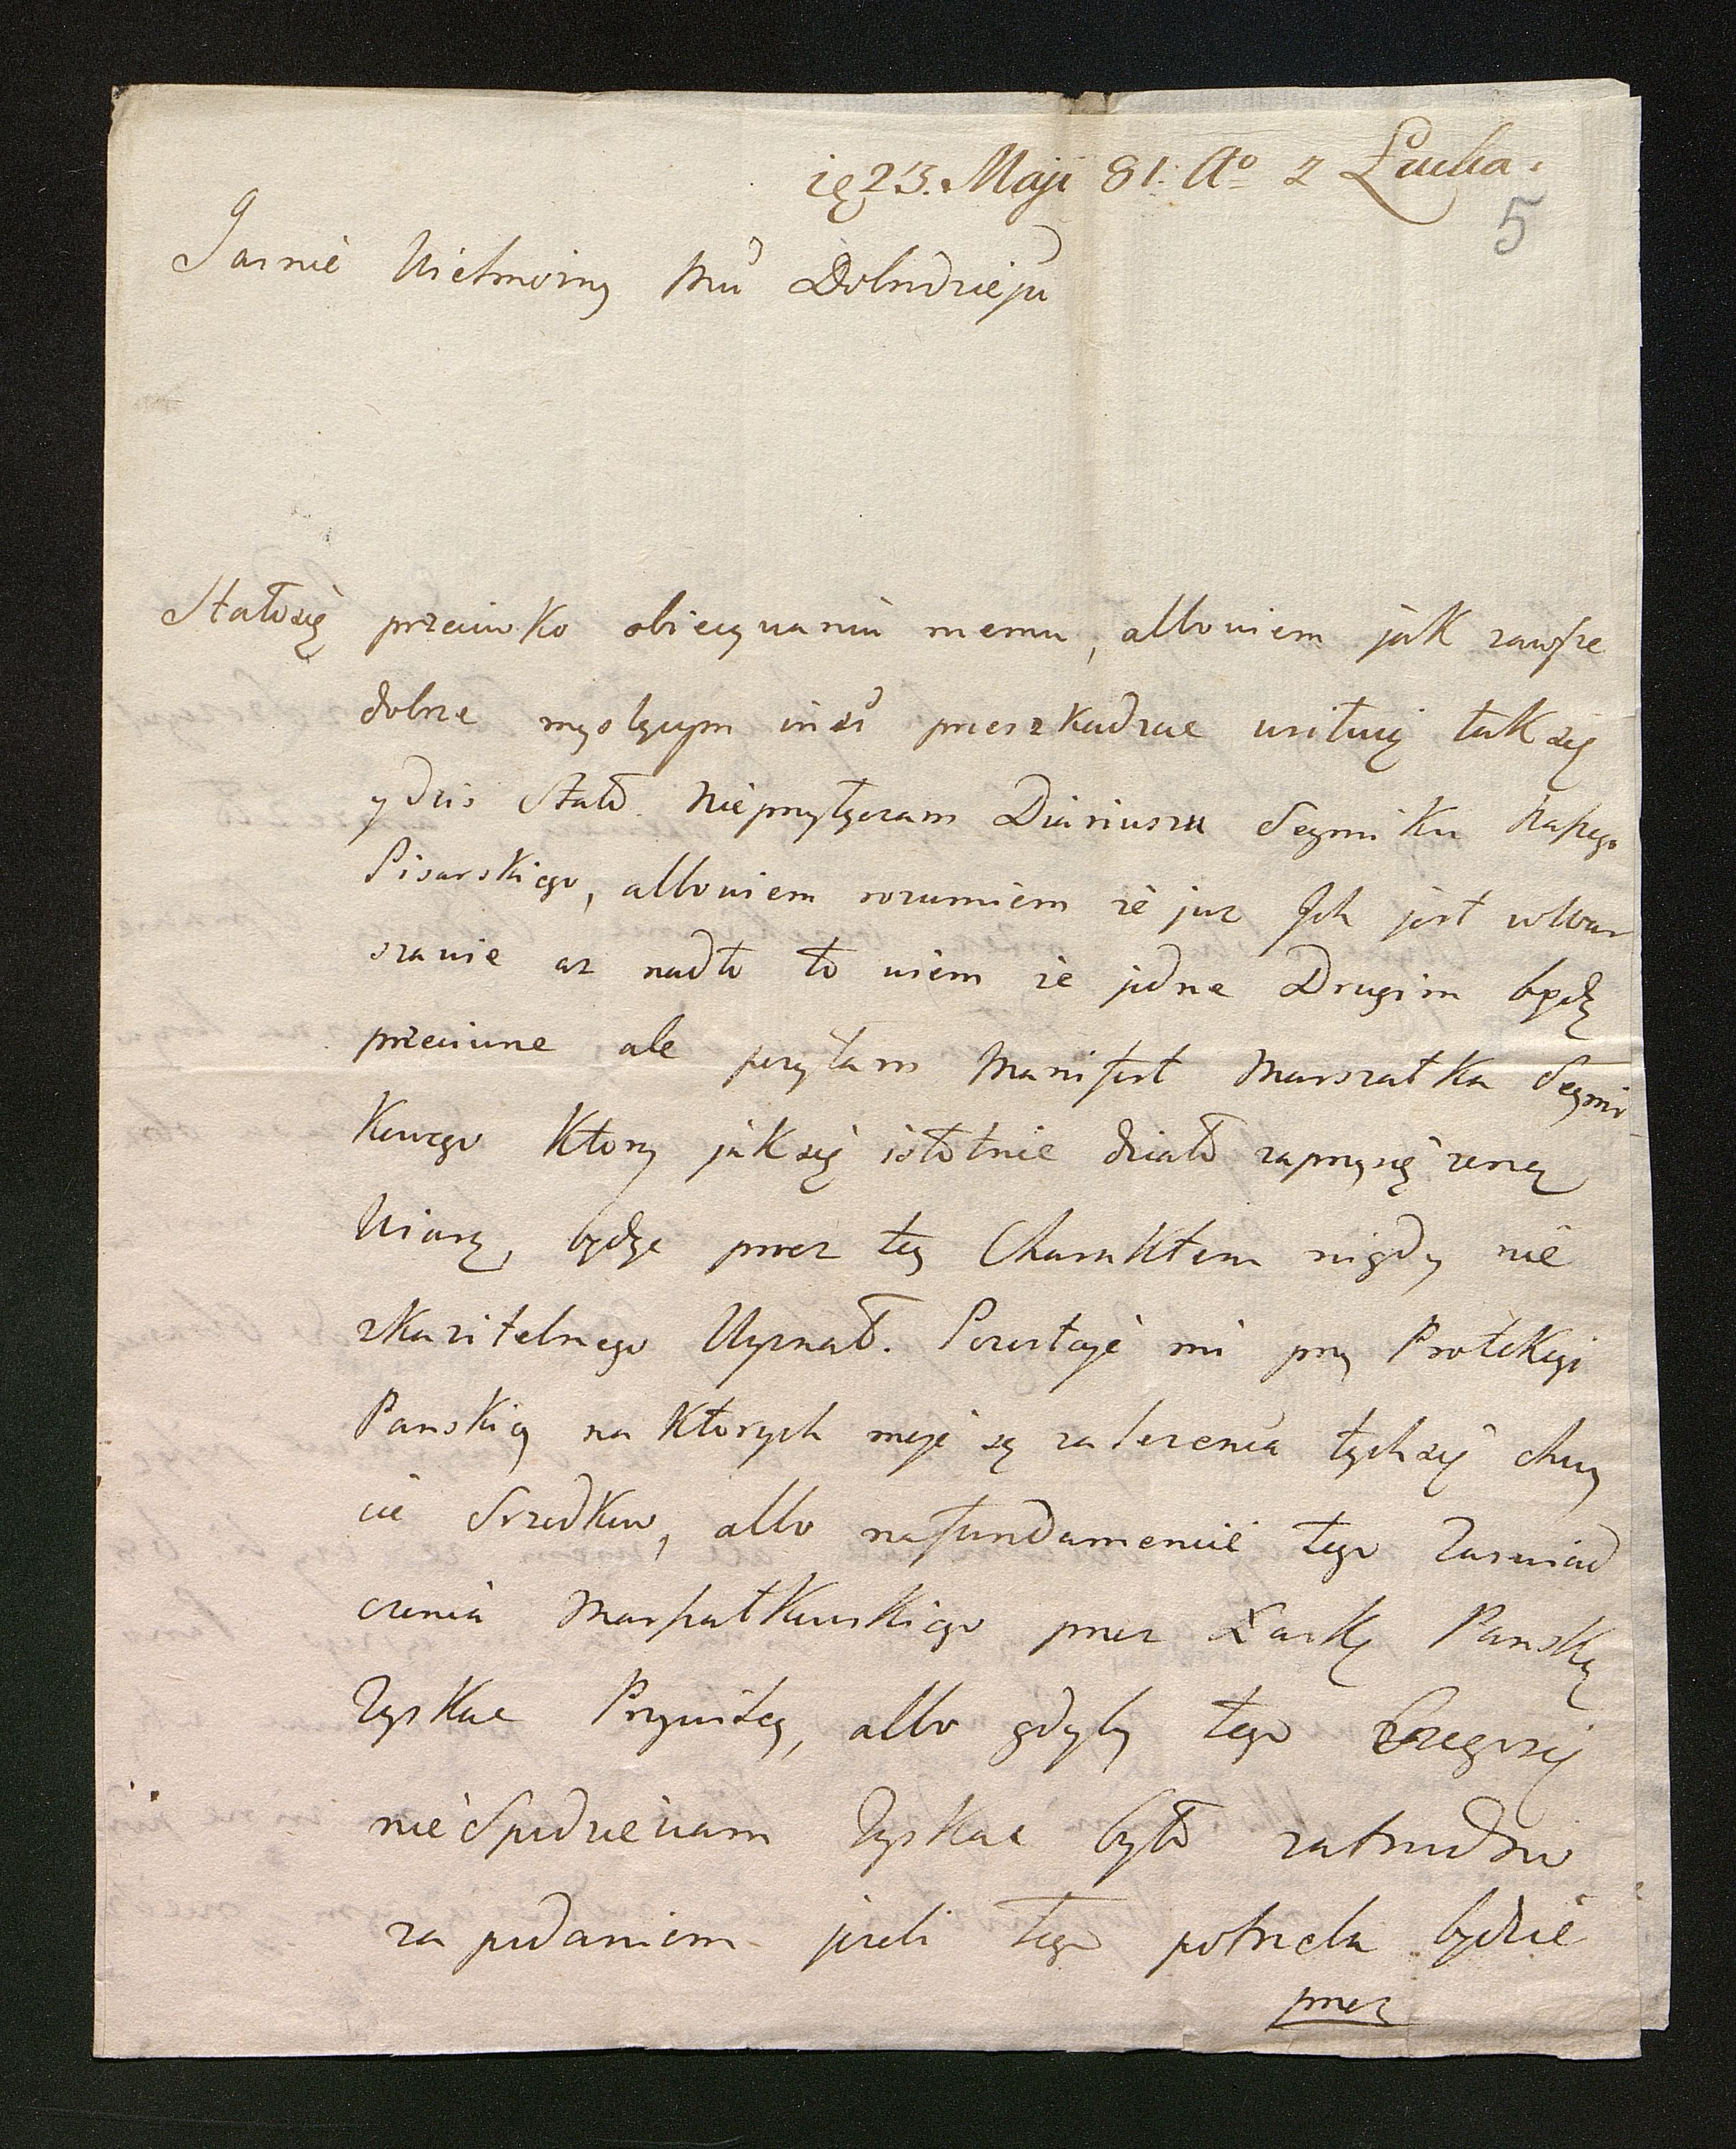 23. Maji 81. Aº z Łucka.
5
Jasnie Wielmozny Mci Dobrodzieju
Stałosię przeciwko obiecywaniu memu, albowiem jak zawsze
dobrze myslącym insi przeszkadzac usiłuią tak się
y dzis Stało. Nieprzyłączam Diariuszu Seymiku Naszego
Pisarskiego, albowiem rozumiem że juz Ich jest wWar
szawie az nadto to wiem że jedne Drugim będą
przeciwne ale Manifest Marszałka Seymi
kowego Ktory jaksię istotnie działo zaprzysiężoney
Wiary, będąc przez tę Charaktem nigdy nie
skazitelnego Wyznał. Pozostaje mi przy Protekcyi
Panskiey na Ktorych moje są zalozenia tychsię chwy
cic Srzodkow, albo nafundamencie tego Zaswiad
czenia Marszałkowskiego przez Łaskę Panską
Zyskac Przywiley, albo gdyby tego Czegosię
nieSpodziewam Zyskac było zatrudno
za podaniem jezeli tego potrzeba będzie
przez